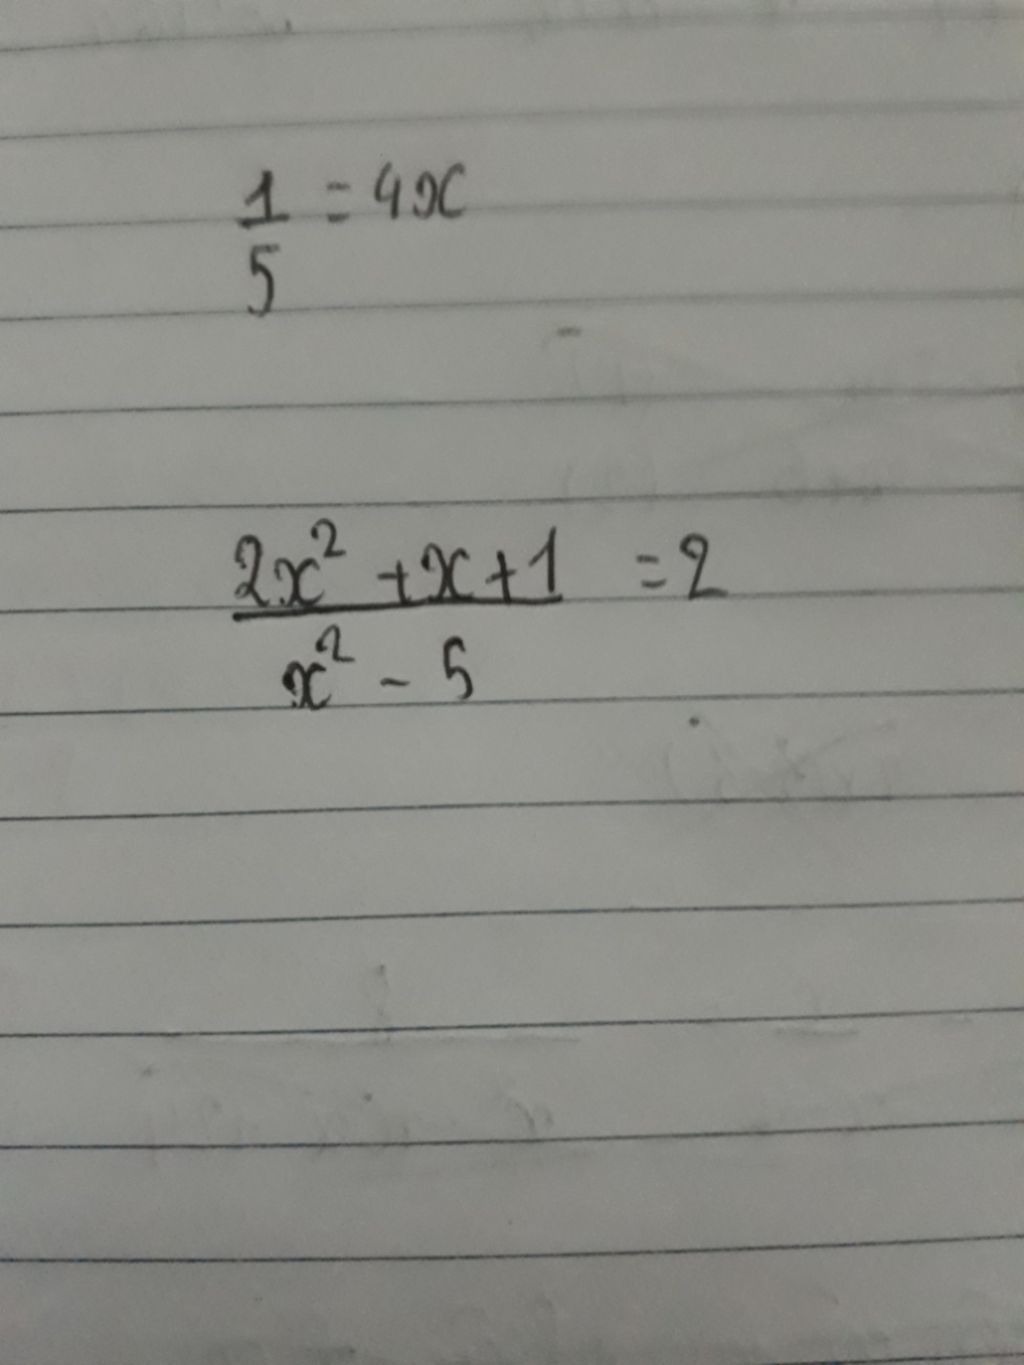 1/5 = 4x
(2x² + x + 1)/(x² - 5) = 2